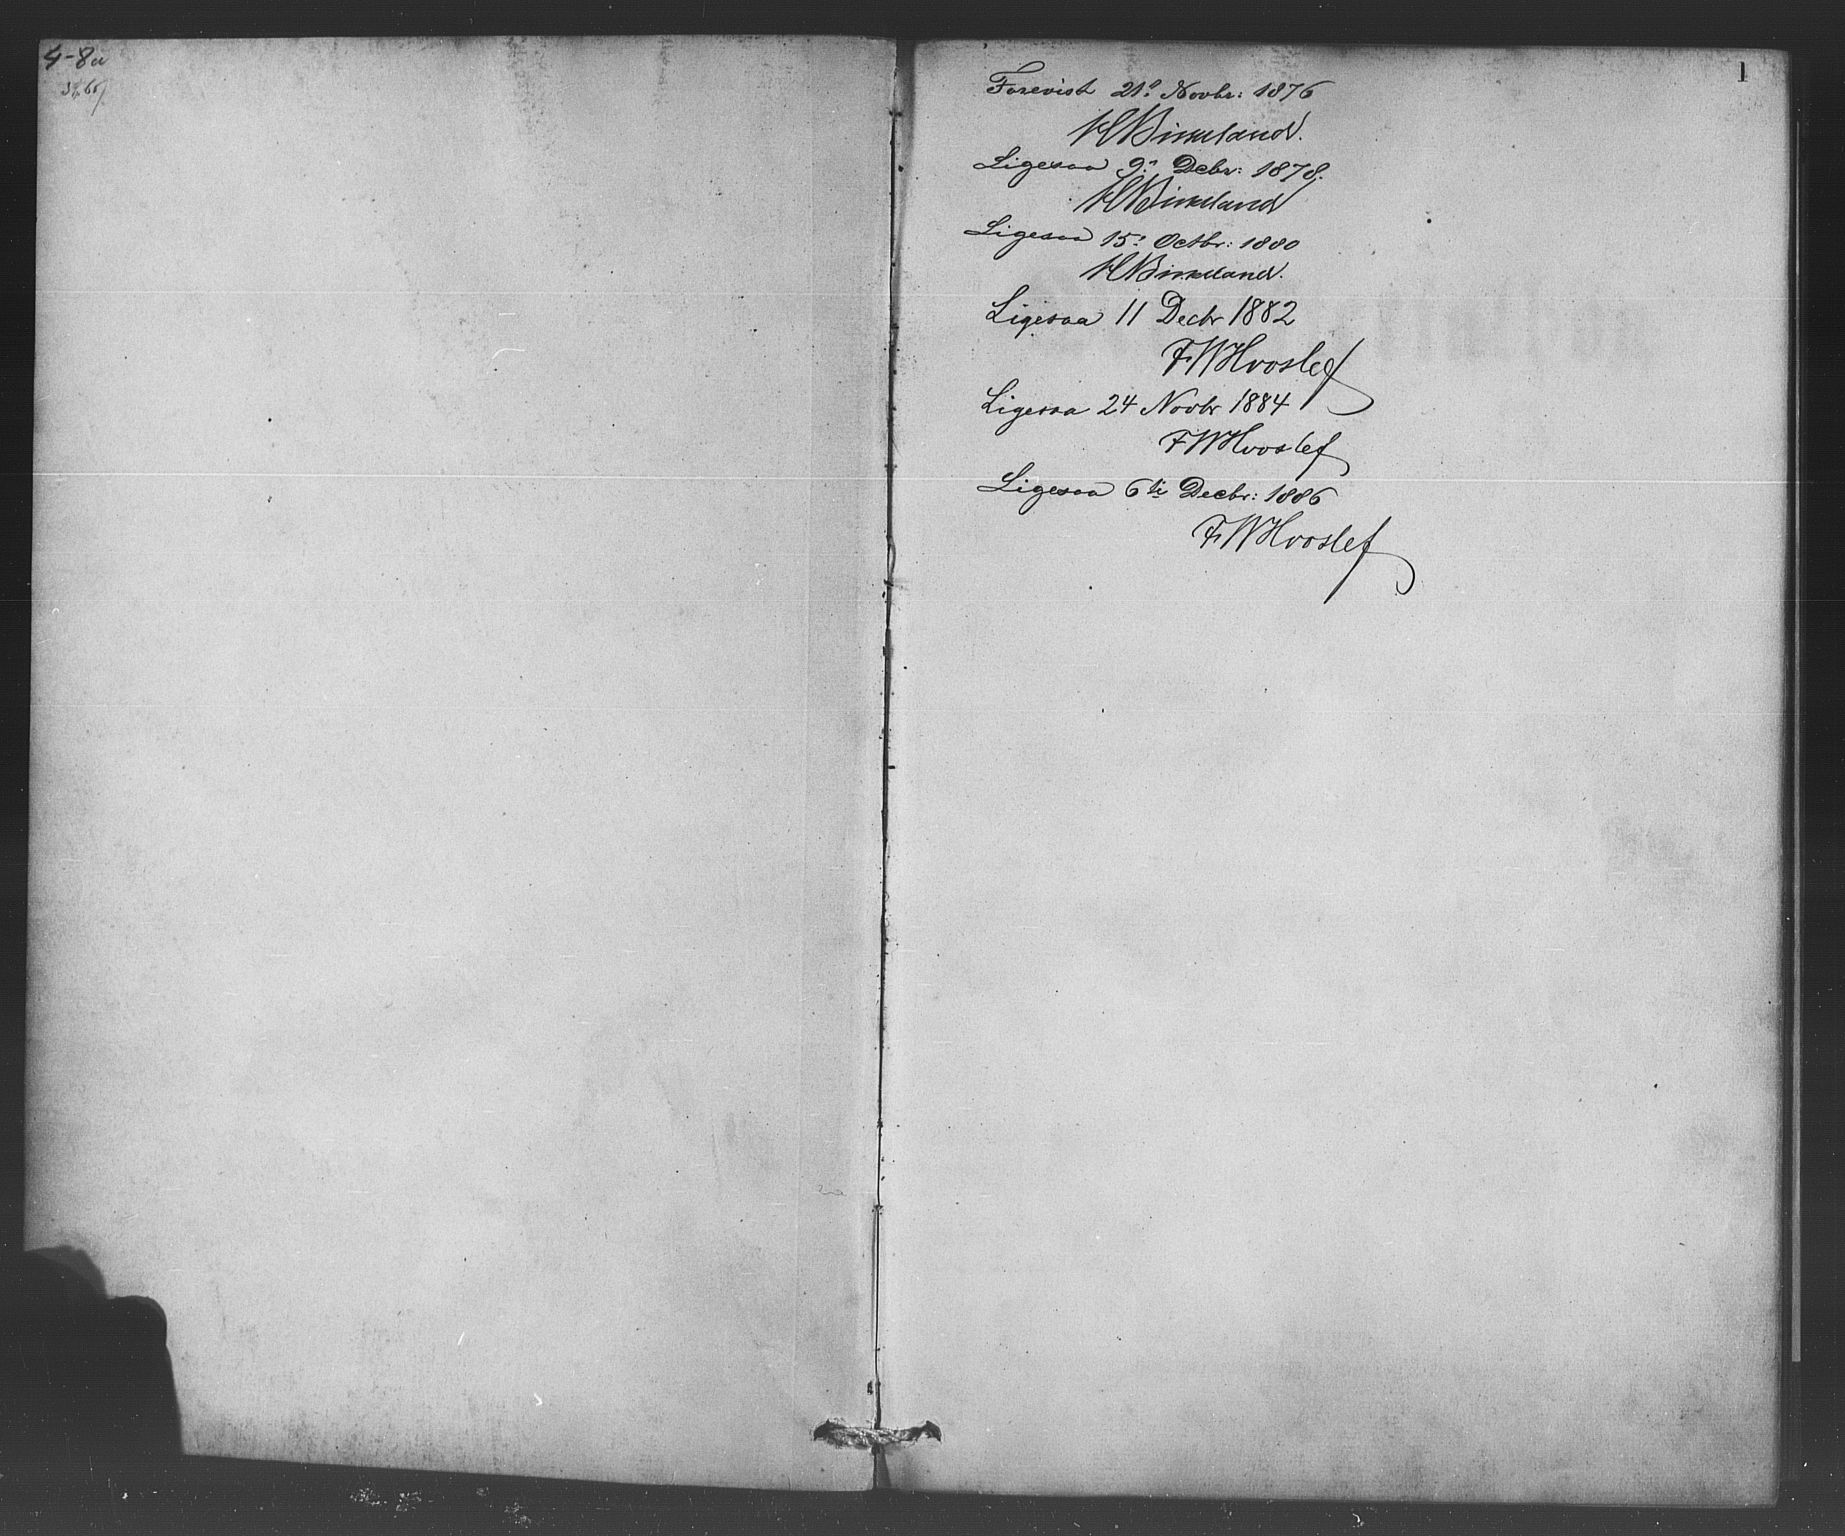 4-8a
1
Forevist 21de Novbr: 1876
HBirkeland.
Ligesaa 9de Decbr: 1878.
HBirkeland
Ligesaa 15de Octbr: 1880
HBirkeland.
Ligesaa 11 Decbr 1882
FWHvoslef
Ligesaa 24 Novbr 1884
FWHvoslef
Ligesaa 6te Decbr: 1886
FWHvoslef